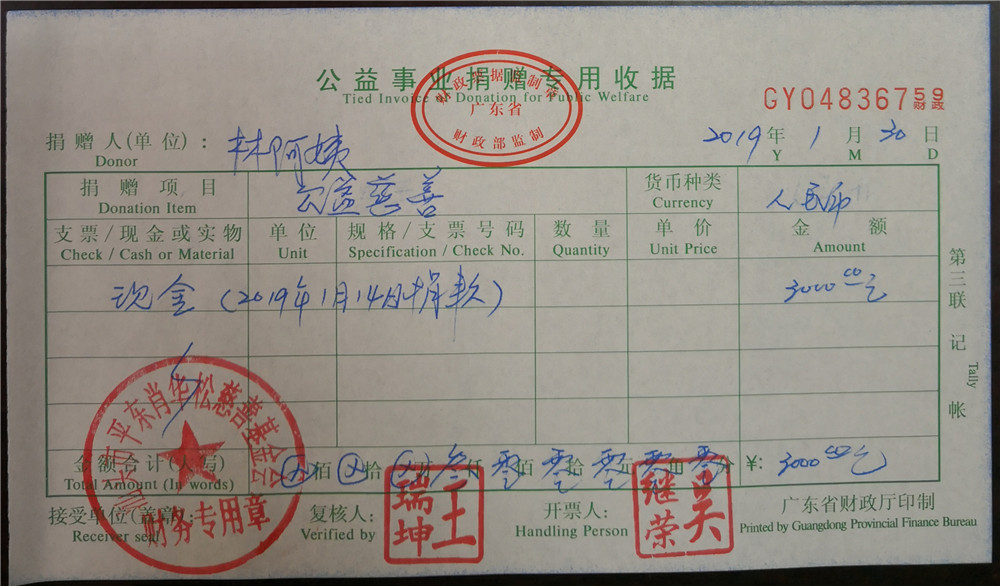 公益事业捐赠专用收据
Tied Invoice of Donation for Public Welfare
财政票据监制章
广东省
财政部监制
GY04836759
财政
捐赠人(单位): 林阿姨
Donor
2019年 1月 30日
Y M D
捐赠项目 公益慈善 货币种类 人民币
Donation Item Currency
支票/现金或实物 单位 规格/支票号码 数量 单价 金额
Check / Cash or Material Unit Specification / Check No. Quantity Unit Price Amount
现金(2019年1月14日捐款) 3000.00元
金额合计(大写) 佰 拾 万 叁仟 零佰 零拾 零元 零角 零分 ¥: 3000.00元
Total Amount (In words)
接受单位(盖章): 复核人: 开票人: 广东省财政厅印制
Receiver seal Verified by Handling Person Printed by Guangdong Provincial Finance Bureau
平东肖华松慈善基金会
财务专用章
王瑞坤
吴继荣
第三联 记帐
Tally